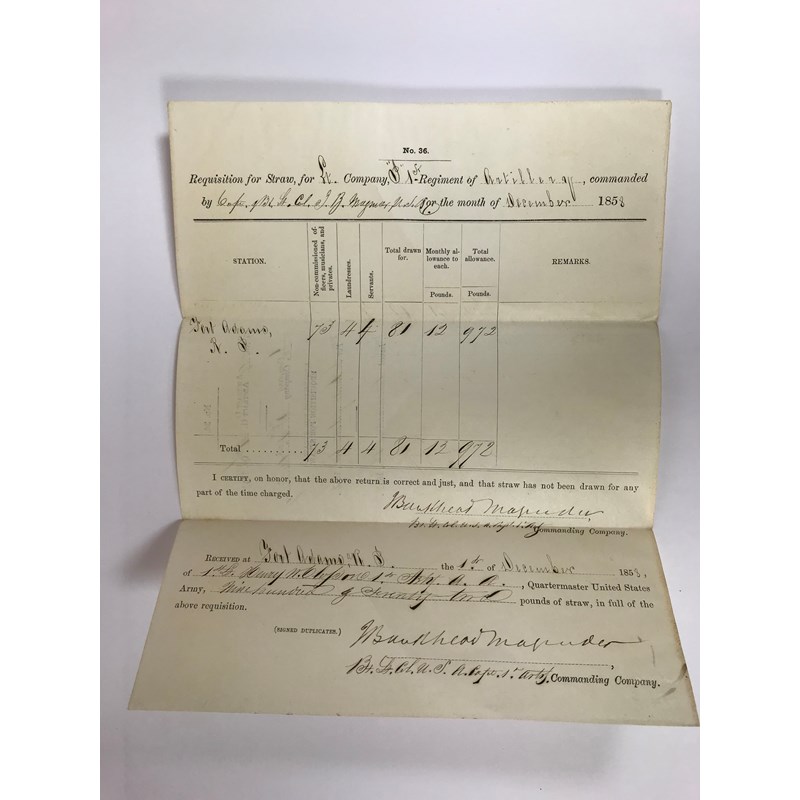 No. 36.
Requisition for Straw, for Lt. Company, "I" 1st Regiment of Artillery, commanded
by Capt. & Bt. Lt. Col. J. B. Magruder, U.S.A. for the month of December 1858
STATION. Non-commissioned officers, musicians, and privates. Laundresses. Servants. Total drawn for. Monthly allowance to each. Total allowance. REMARKS.
Pounds. Pounds.
Fort Adams, 73 4 4 81 12 972
R. I.
Total .......... 73 4 4 81 12 972
I CERTIFY, on honor, that the above return is correct and just, and that straw has not been drawn for any
part of the time charged.
J Bankhead Magruder
Commanding Company.
RECEIVED at Fort Adams, R. I. the 1st of December 1858,
of 1st Lt. Henry W. Closson 1st Art. A. A. , Quartermaster United States
Army, Nine hundred & Seventy two pounds of straw, in full of the
above requisition.
(SIGNED DUPLICATES.)
J Bankhead Magruder
Bt. Lt. Col. U. S. A. Capt. 1st Arty, Commanding Company.